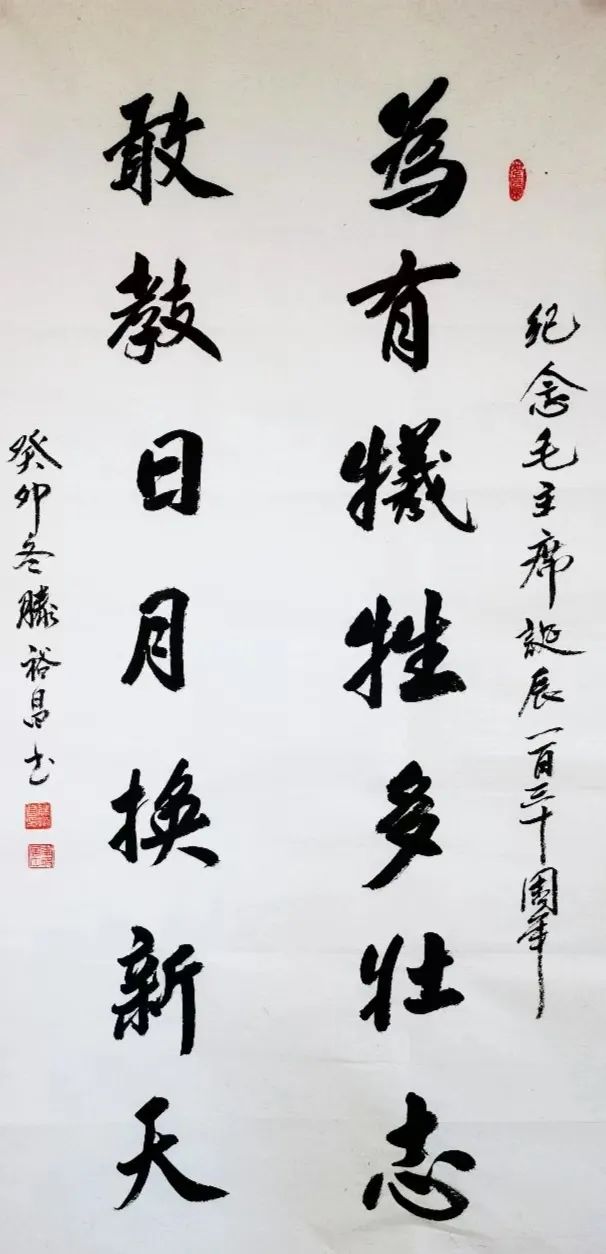 纪念毛主席誕辰一百三十周年
為有犧牲多壮志
敢教日月换新天
癸卯冬滕裕昌书